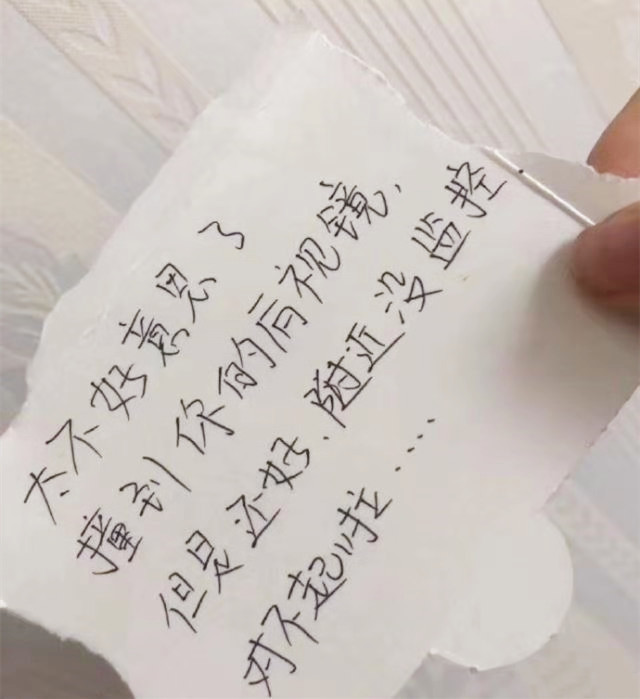 太不好意思了
撞到你的后视镜.
但是还好.附近没监控
对不起啦....